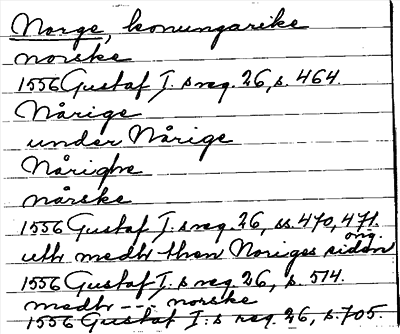 Norge, konungarike
norske
1556 Gustaf I:s reg. 26, s. 464.
Nårige
under Nårige
Nårighe
nårske
1556 Gustaf I:s reg. 26, ss. 470, 471.
orig.
uthi medh then Noriges sidan
1556 Gustaf I:s reg. 26, s. 574.
medh - - norske
1556 Gustaf I:s reg. 26, s. 705.